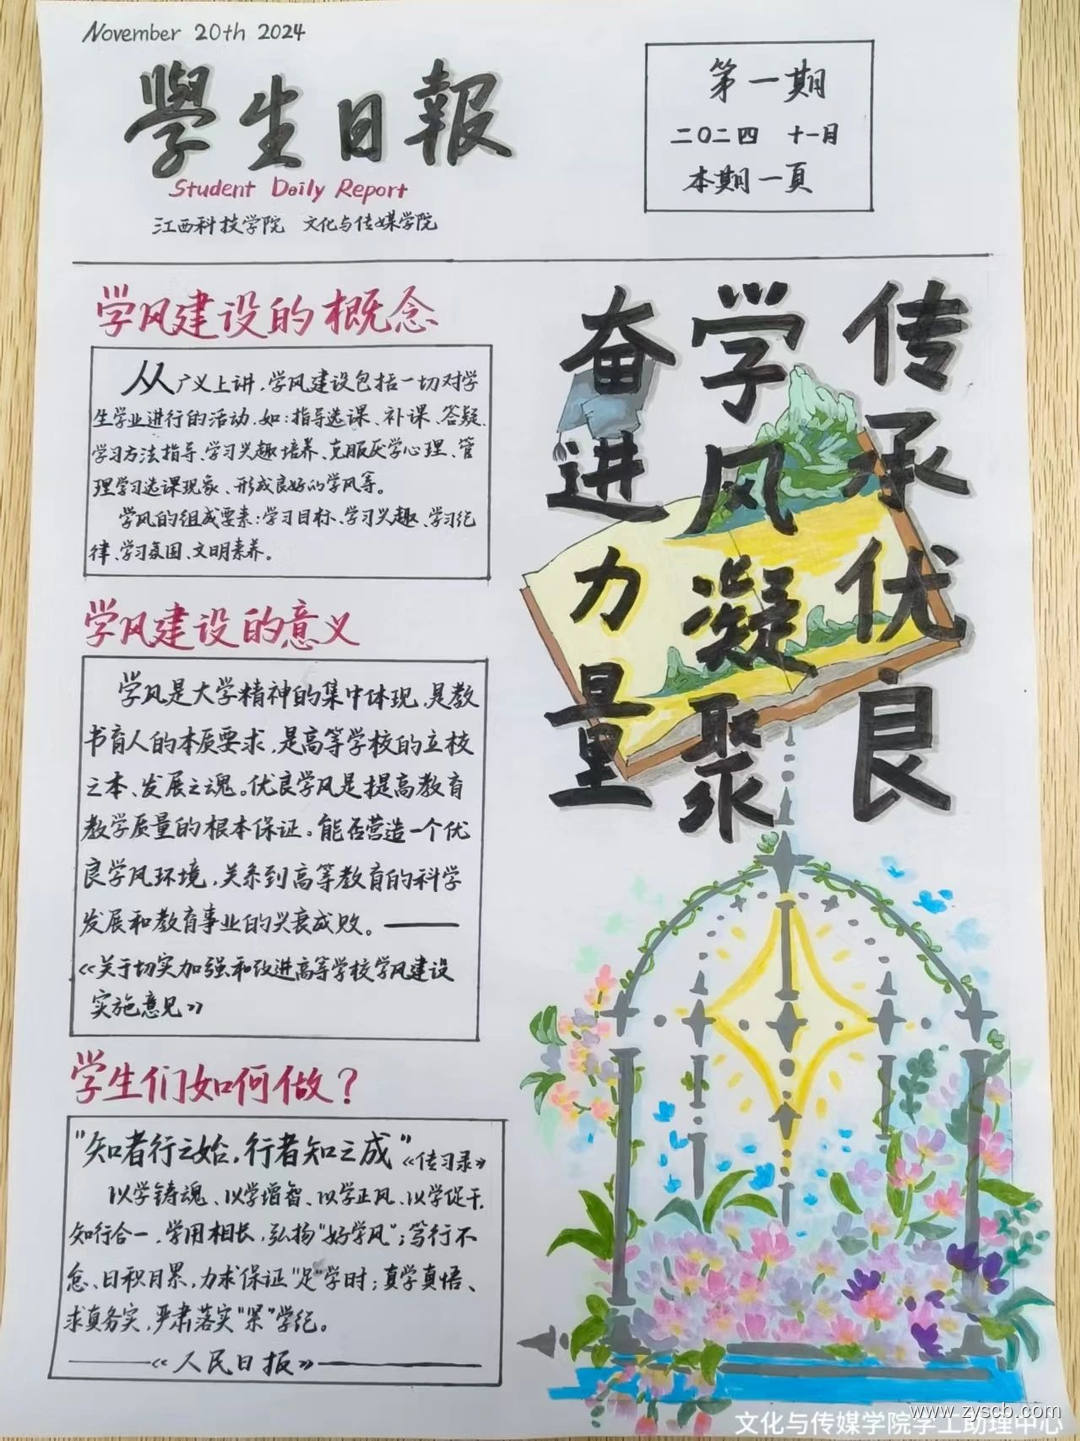 November 20th 2024
學生日報
Student Daily Report
江西科技学院 文化与传媒学院
第一期
二〇二四 十一月
本期一頁
学风建设的概念
从广义上讲,学风建设包括一切对学
生学业进行的活动,如:指导选课、补课、答疑、
学习方法指导、学习兴趣培养、克服厌学心理、管
理学习选课现象、形成良好的学风等。
学风的组成要素:学习目标、学习兴趣、学习纪
律、学习氛围、文明素养。
学风建设的意义
学风是大学精神的集中体现,是教
书育人的本质要求,是高等学校的立校
之本、发展之魂。优良学风是提高教育
教学质量的根本保证。能否营造一个优
良学风环境,关系到高等教育的科学
发展和教育事业的兴衰成败。——
《关于切实加强和改进高等学校学风建设
实施意见》
学生们如何做?
"知者行之始,行者知之成"《传习录》
以学铸魂、以学增智、以学正风、以学促干,
知行合一,学用相长,弘扬"好学风";笃行不
怠、日积月累,力求保证"足"学时;真学真悟、
求真务实,严肃落实"紧"学纪。
——《人民日报》——
传承优良
学风凝聚
奋进力量
文化与传媒学院学工助理中心
www.zyscb.com